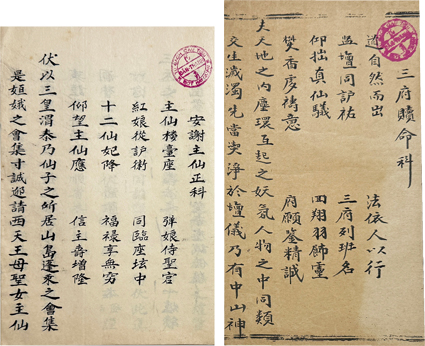 三府贖命科
道自然而出 法依人以行
盂壇同訢祐 三府列班名
仰拙真仙蟻 四翔羽篩臺
焚香度禱意 府願鑒精誠
夫天地之内塵環互起之妖氛人物之中同類
交生濊濁先當安淨於壇儀乃有中山神
安謝主仙正科
主仙榜臺座 弹娘侍聖宫
紅娘從訢街 同臨座玹中
十二仙妃降 福禄享無穷
仰望主仙應 信主壽增隆
伏以三皇渭泰乃仙子之所居山島蓬萊之會集
是姮娥之會集寸誠迎請西天王母聖女主仙